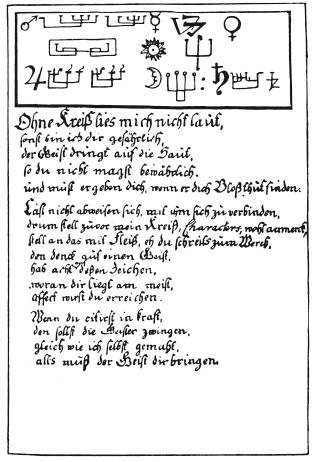 Ohne Kreiß lies mich nicht laut,
sonst bin ich dir gefährlich,
der Geist dringt auf die Haut,
so du nicht magst bewährlich.
und must ergeben dich, wenn er dich Bloß thut finden.
Laß nicht abweisen sich, mit ihm sich zu verbinden,
drum stell zuvor mein Kreiß, Characters, wohl anmerck,
stell an das mit Fleiß, eh du schreits zum Werck,
den denck auf einen Geist,
hab acht deßen Zeichen,
woran dir liegt am meist,
affect wirst du erreichen.
Wenn du citirst in kraft,
den sollst die Geister zwingen,
gleich wie ich selbst gemacht,
alls muß der Geist dir bringen.